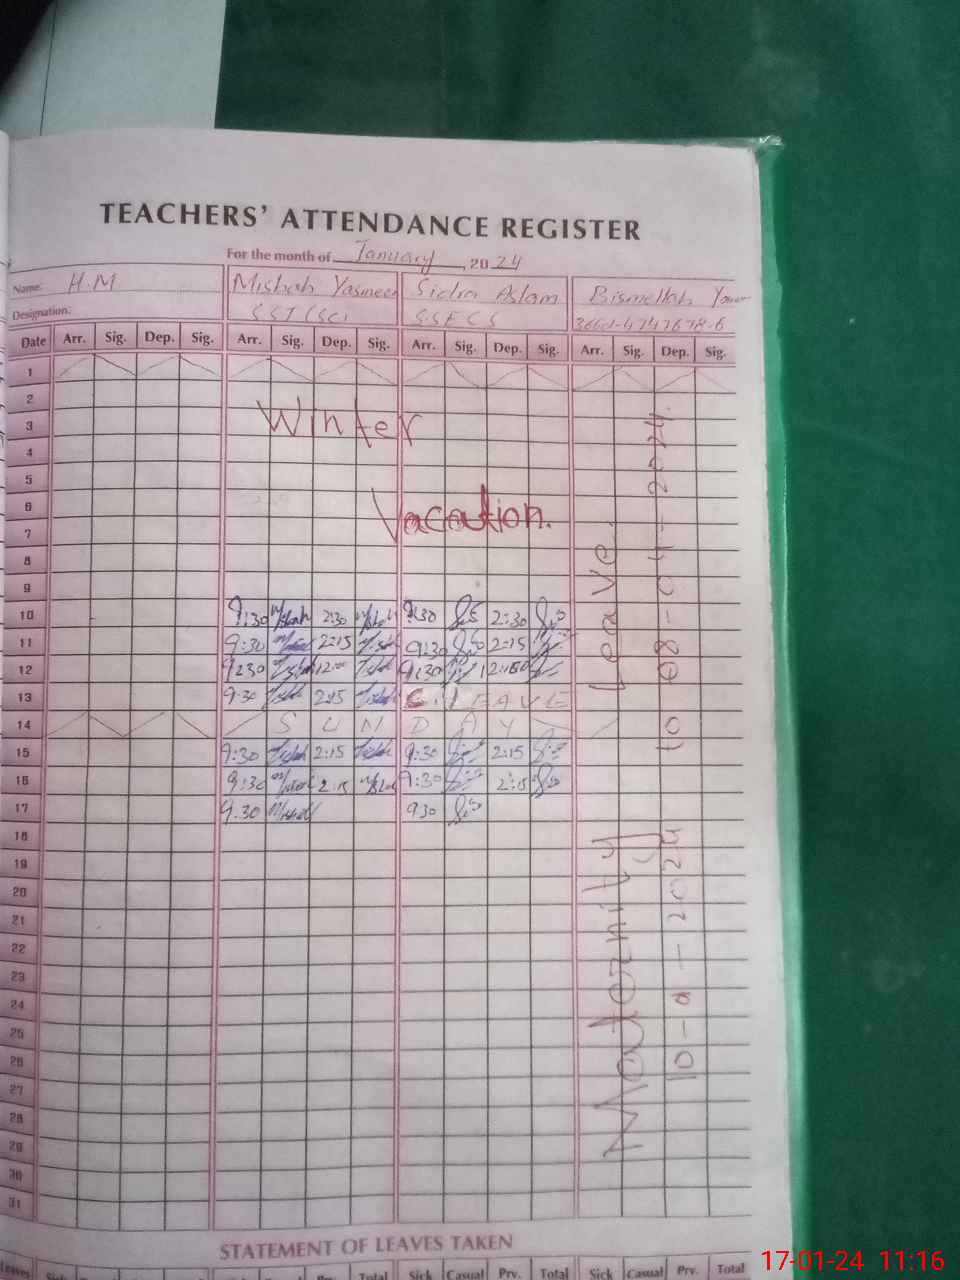 TEACHERS' ATTENDANCE REGISTER
For the month of January, 2024
Name: H.M Misbah Yasmeen Sidra Aslam Bismellah
Designation: SST (Sci) S.S.E C.S
Date Arr. Sig. Dep. Sig. Arr. Sig. Dep. Sig. Arr. Sig. Dep. Sig. Arr. Sig. Dep. Sig.
1
2
3 Winter
4
5
6
7 Vacation.
8
9
10 9:30 Misbah 2:30 Misbah 9:30 2:30
11 9:30 2:15 9:30 2:15
12 9:30 12:00 9:30
13 9:30 2:15 C. LEAVE
14 SUNDAY
15 9:30 2:15 9:30 2:15
16 9:30 2:15 9:30 2:15
17 9:30 Misbah 930
18
19
20
21
22
23
24
25
26
27
28
29
30
31
Maternity Leave
to 08-04-2024.
STATEMENT OF LEAVES TAKEN
Leaves Sick Prv. Total Sick Casual Prv. Total Sick Casual Prv. Total
17-01-24 11:16